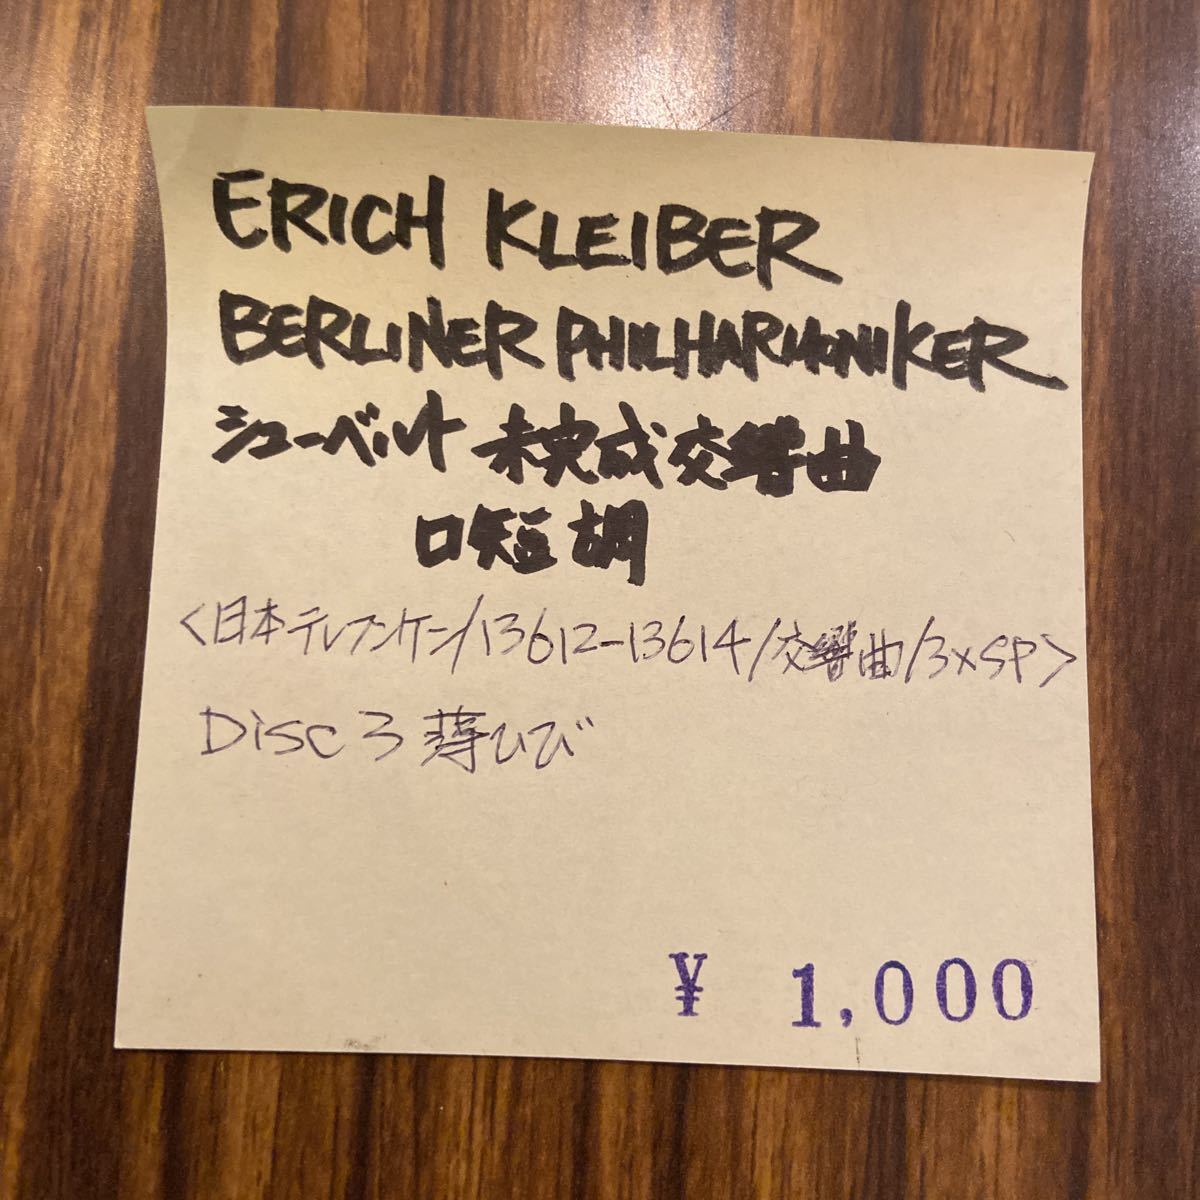 ERICH KLEIBER
BERLINER PHILHARMONIKER
シューベルト 未完成交響曲
ロ短調
<日本テレフンケン/13612-13614/交響曲/3×SP>
Disc 3 薄ひび
¥ 1,000